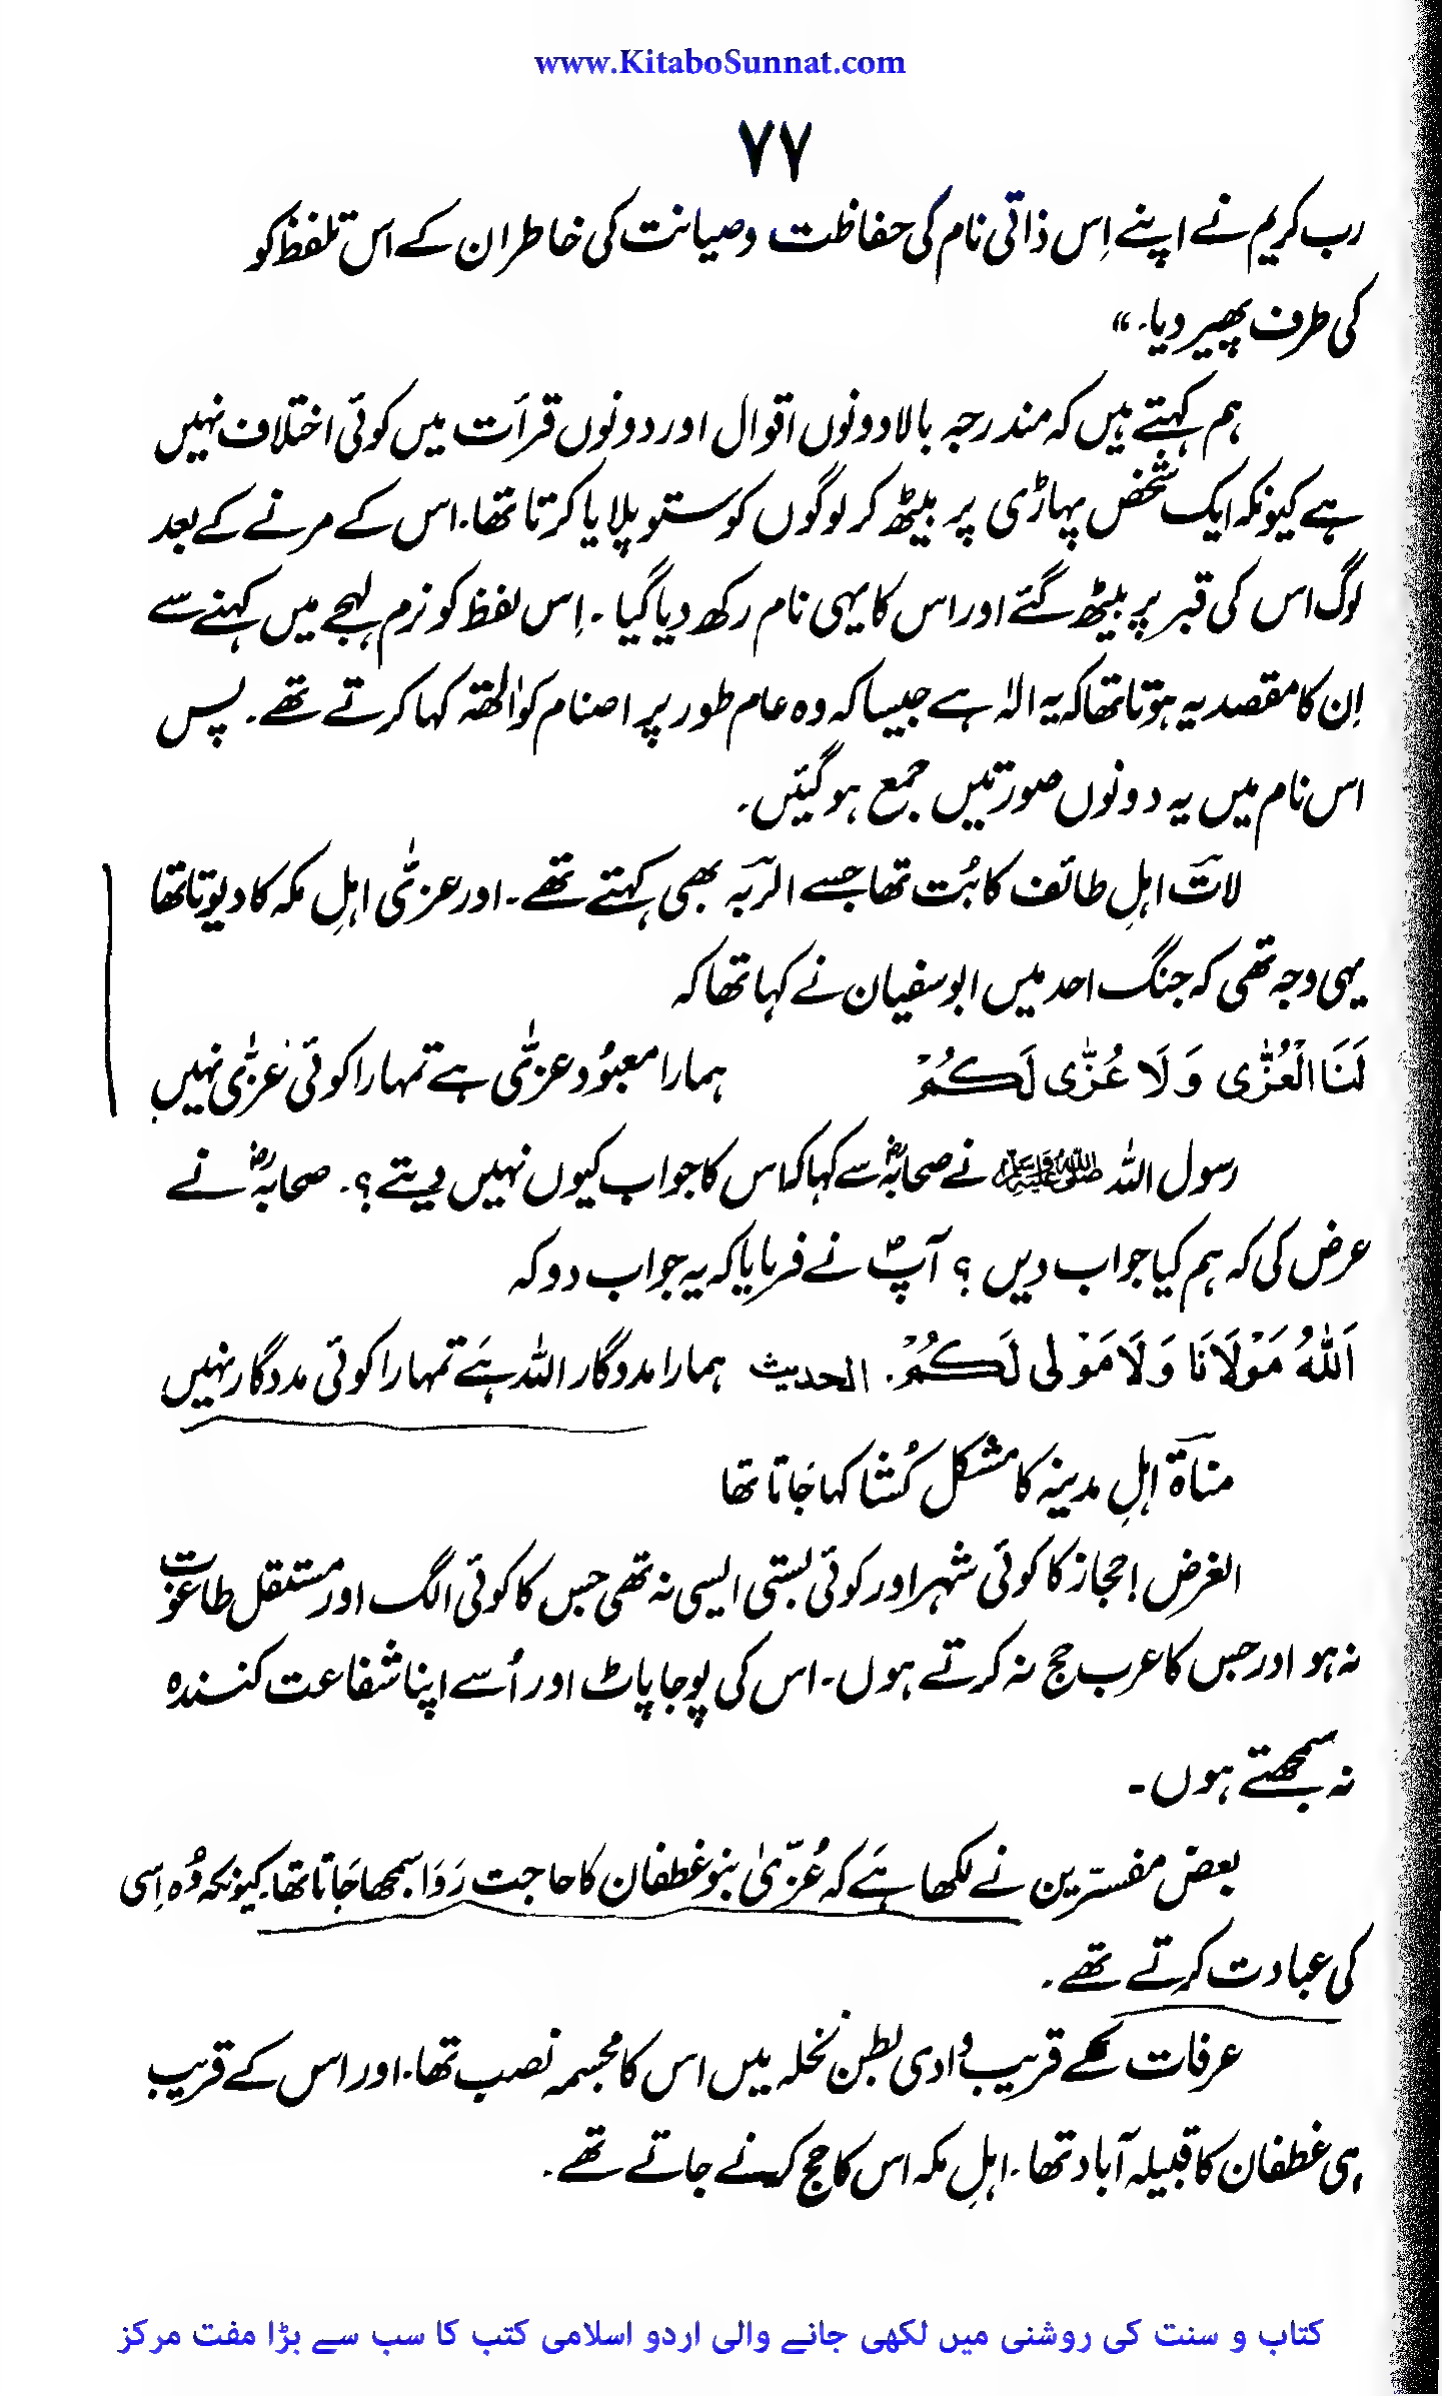 www.KitaboSunnat.com
۷۷
رب کریم نے اپنے اِس ذاتی نام کی حفاظت وصیانت کی خاطر ان کے اس تلفظ کو
کی طرف پھیر دیا۔"
ہم کہتے ہیں کہ مندرجہ بالا دونوں اقوال اور دونوں قرأت میں کوئی اختلاف نہیں
ہے کیونکہ ایک شخص پہاڑی پر بیٹھ کر لوگوں کو ستو پلایا کرتا تھا۔ اس کے مرنے کے بعد
لوگ اس کی قبر پر بیٹھ گئے اور اس کا یہی نام رکھ دیا گیا۔ اِس لفظ کو نرم لہجے میں کہنے سے
اِن کا مقصد یہ ہوتا تھا کہ یہ الٰہ ہے جیسا کہ وہ عام طور پر اصنام کو اٰلھتہ کہا کرتے تھے۔ پس
اس نام میں یہ دونوں صورتیں جمع ہو گیئں۔
لات اہلِ طائف کا بُت تھا جسے الربہ بھی کہتے تھے۔ اور عزیٰ اہلِ مکہ کا دیوتا تھا
یہی وجہ تھی کہ جنگ احد میں ابوسفیان نے کہا تھا کہ
لَنَا الْعُزّٰی وَلَا عُزّٰی لَکُمْ ہمارا معبُود عزیٰ ہے تمہارا کوئی عزیٰ نہیں
رسول اللہ ﷺ نے صحابہؓ سے کہا کہ اس کا جواب کیوں نہیں دیتے؟۔ صحابہؓ نے
عرض کی کہ ہم کیا جواب دیں ؟ آپؐ نے فرمایا کہ یہ جواب دو کہ
اَللّٰهُ مَوْلَانَا وَلَا مَوْلٰی لَکُمْ۔ الحدیث ہمارا مددگار اللہ ہَے تمہارا کوئی مددگار نہیں
مناۃ اہلِ مدینہ کا مشکل کُشا کہا جَاتا تھا
الغرض! حجاز کا کوئی شہر اور کوئی بستی ایسی نہ تھی جس کا کوئی الگ اور مستقل طاغوت
نہ ہو اور جس کا عرب حج نہ کرتے ہوں۔ اس کی پوجا پاٹ اور اُسے اپنا شفاعت کنندہ
نہ سمجھتے ہوں۔
بعض مفسّرین نے لکھا ہَے کہ عُزّیٰ بنو غطفان کا حاجت رَوَا سمجھا جَاتا تھا۔ کیونکہ وُہ اِسی
کی عبادت کرتے تھے۔
عرفات کے قریب وادی بطن نخلہ میں اس کا مجسمہ نصب تھا۔ اور اس کے قریب
ہی غطفان کا قبیلہ آباد تھا۔ اہلِ مکہ اس کا حج کرنے جاتے تھے۔
کتاب و سنت کی روشنی میں لکھی جانے والی اردو اسلامی کتب کا سب سے بڑا مفت مرکز